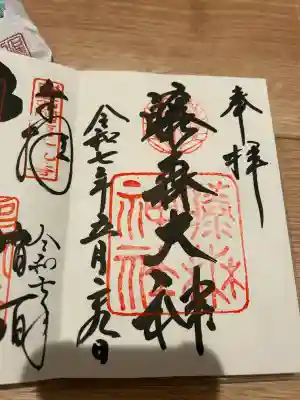 奉拝
藤森大神
令和七年五月二九日
藤森神社
奉拝
令和七年